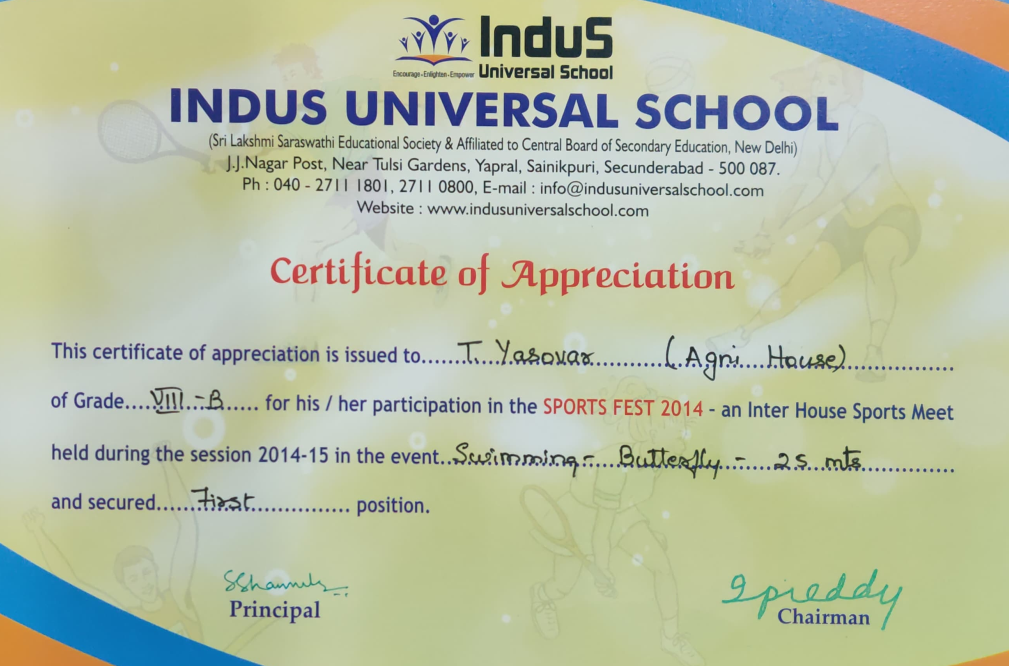 InduS
Encourage-Enlighten-Empower Universal School
INDUS UNIVERSAL SCHOOL
(Sri Lakshmi Saraswathi Educational Society & Affiliated to Central Board of Secondary Education, New Delhi)
J.J.Nagar Post, Near Tulsi Gardens, Yapral, Sainikpuri, Secunderabad - 500 087.
Ph : 040 - 2711 1801, 2711 0800, E-mail : info@indusuniversalschool.com
Website : www.indusuniversalschool.com
Certificate of Appreciation
This certificate of appreciation is issued to......T. Yasovar..........(Agni House)..................
of Grade....VIII - B..... for his / her participation in the SPORTS FEST 2014 - an Inter House Sports Meet
held during the session 2014-15 in the event..Swimming - Butterfly - 25 mts...............
and secured......First............... position.
Principal
Chairman